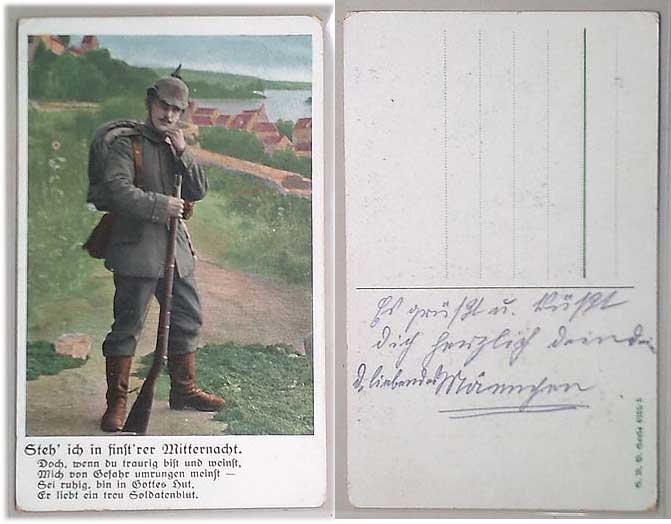 Steh' ich in finst'rer Mitternacht.
Doch, wenn du traurig bist und weinst,
Mich von Gefahr umrungen meinst —
Sei ruhig, bin in Gottes Hut,
Er liebt ein treu Soldatenblut.
Es grüßt u. küßt
dich herzlich dein
d. liebendes Männchen
Serie